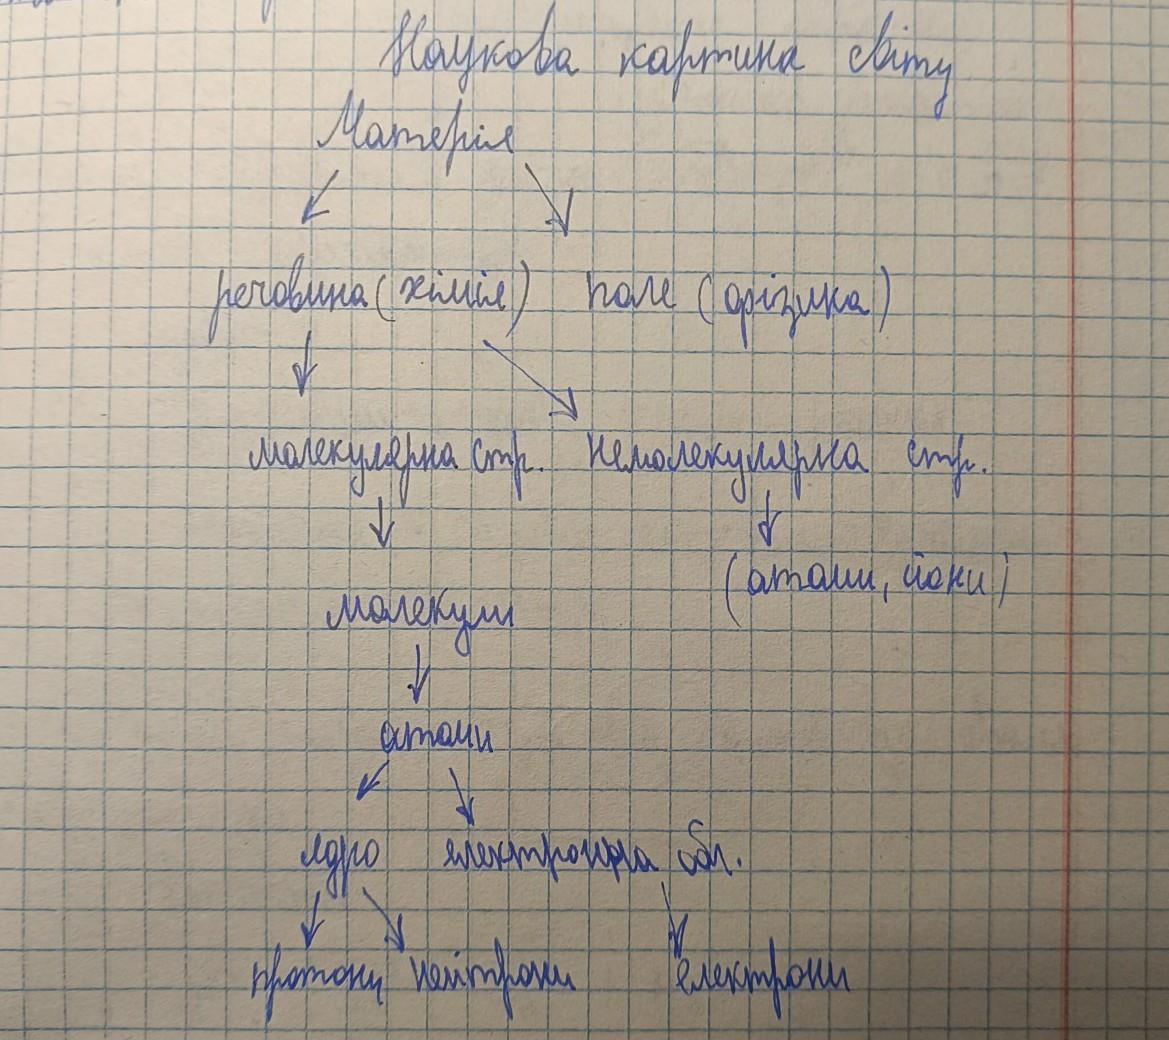 Наукова картина світу
Матерія
речовина (хімія) поле (фізика)
молекулярна стр. немолекулярна стр.
(атоми, йони)
молекули
атоми
ядро електронна обл.
протони нейтрони електрони